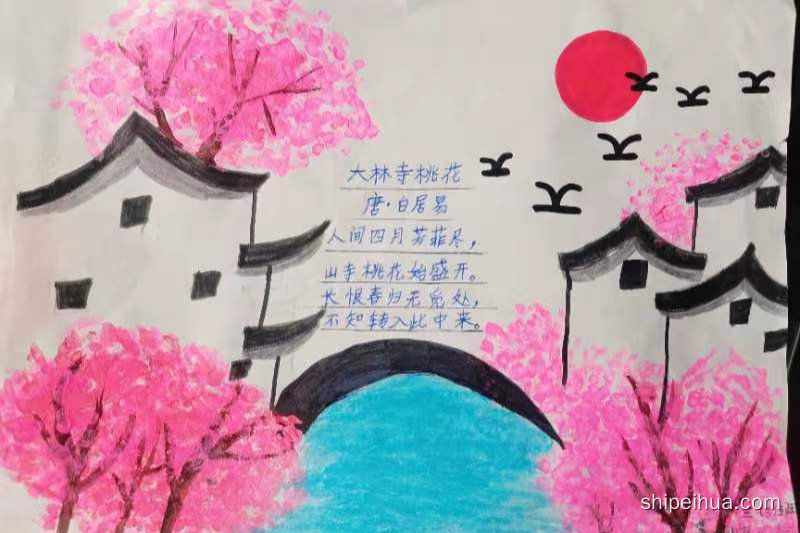 大林寺桃花
唐·白居易
人间四月芳菲尽，
山寺桃花始盛开。
长恨春归无觅处，
不知转入此中来。
shipeihua.com